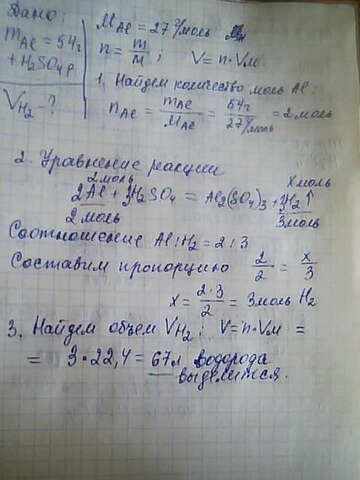 Дано:
m Al = 54г
+ H₂SO₄ р
V H₂ - ?
M Al = 27 г/моль
n = m/M ; V = n · Vм
1. Найдем количество моль Al:
n Al = m Al / M Al = 54г / 27 г/моль = 2 моль
2. Уравнение реакции
2 моль х моль
2Al + 3H₂SO₄ = Al₂(SO₄)₃ + 3H₂ ↑
2 моль 3 моль
Соотношение Al : H₂ = 2 : 3
Составим пропорцию 2/2 = x/3
x = 2·3/2 = 3 моль H₂
3. Найдем объем V H₂ ; V = n · Vм =
= 3 · 22,4 = 67л водорода
выделится.